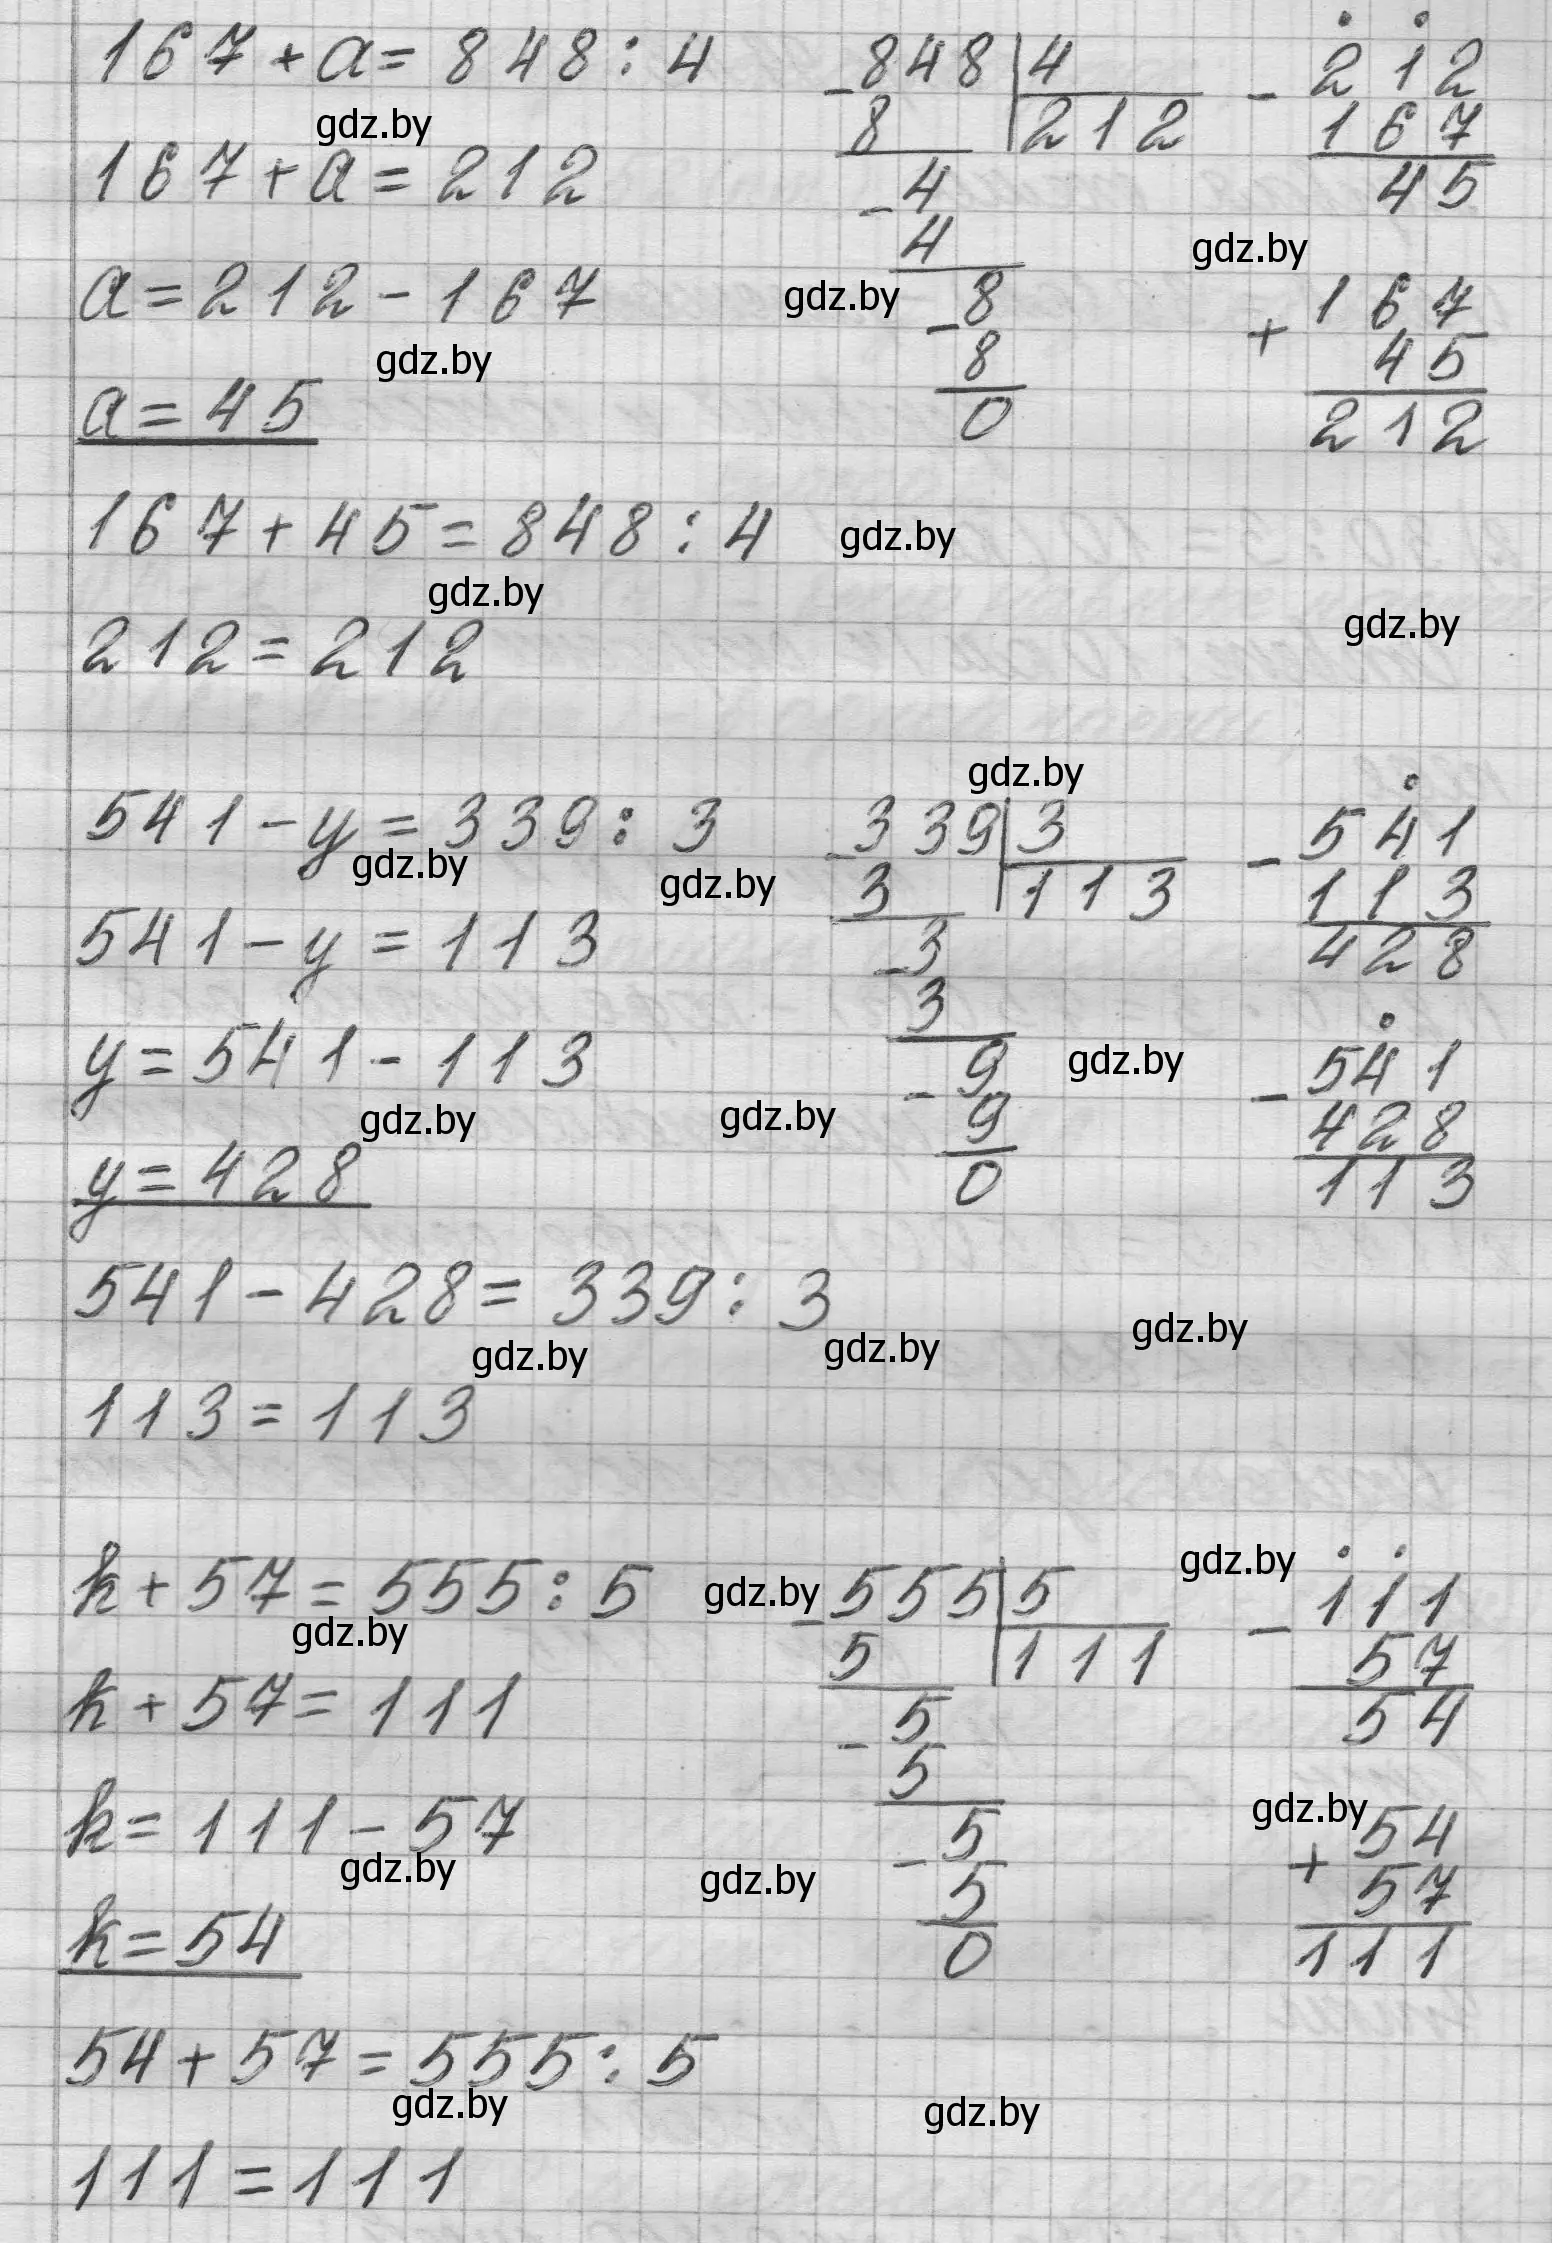 167 + a = 848 : 4
gdz.by
167 + a = 212
a = 212 - 167
gdz.by
a = 45
- 848 | 4
8 | 212
- 4
4
gdz.by
- 8
8
0
- 212
167
45
gdz.by
+ 167
45
212
167 + 45 = 848 : 4
gdz.by
gdz.by
gdz.by
212 = 212
541 - y = 339 : 3
gdz.by
gdz.by
541 - y = 113
y = 541 - 113
gdz.by
gdz.by
y = 428
gdz.by
- 339 | 3
3 | 113
- 3
3
- 9
9
0
- 541
113
428
gdz.by
- 541
428
113
541 - 428 = 339 : 3
gdz.by
gdz.by
gdz.by
113 = 113
k + 57 = 555 : 5
gdz.by
gdz.by
k + 57 = 111
k = 111 - 57
gdz.by
gdz.by
k = 54
- 555 | 5
5 | 111
- 5
5
- 5
5
0
gdz.by
- 111
57
54
gdz.by
+ 54
57
111
54 + 57 = 555 : 5
gdz.by
gdz.by
111 = 111